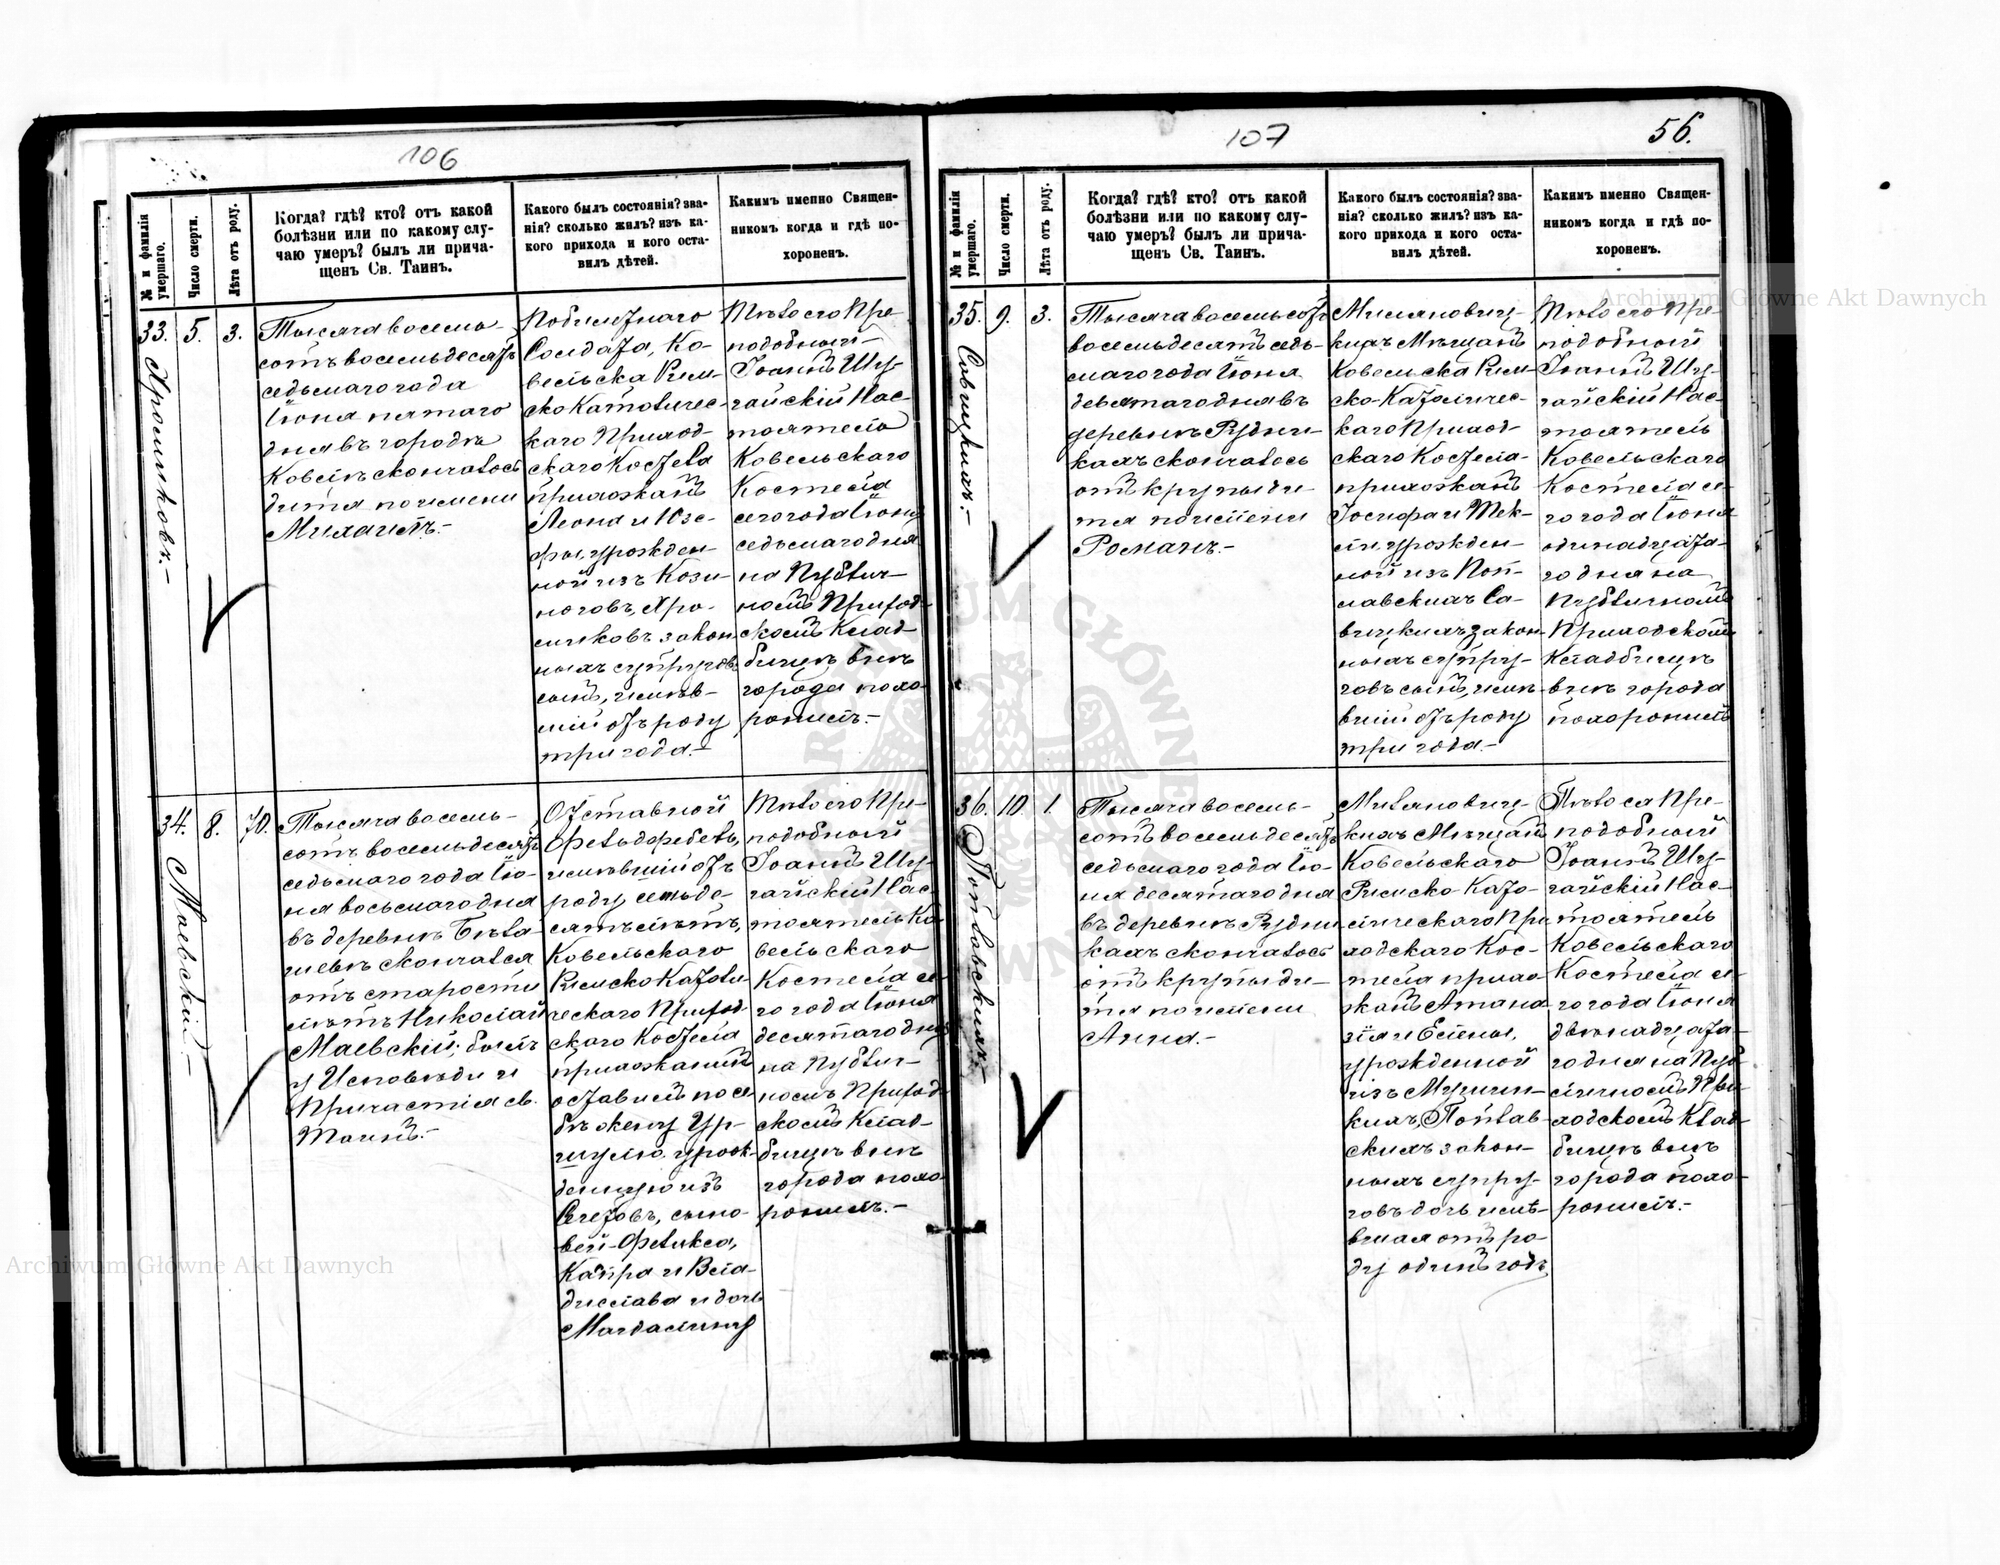 106
№ и фамилія умершаго.
Число смерти.
Лѣта отъ роду.
Когда? гдѣ? кто? отъ какой
болѣзни или по какому слу-
чаю умеръ? былъ ли прича-
щенъ Св. Таинъ.
Какого былъ состоянія? зва-
нія? сколько жилъ? изъ ка-
кого прихода и кого оста-
вилъ дѣтей.
Какимъ именно Священ-
никомъ когда и гдѣ по-
хороненъ.
33.
5.
3.
Тысяча восемь-
сотъ восемьдесятъ
седьмаго года
Іюня пятаго
дня въ городѣ
Ковелѣ скончалось
дитя по имени
Михаилъ.-
Солдата, Ко-
вельска Рим-
ско Католичес-
каго Приход-
скаго Костела
прихожанъ
Леона и Юзе-
фы, урожден-
ной изъ Кози-
ноковъ, Хро-
ликовъ закон
ныхъ супруговъ
сынъ, имѣв-
шій отъ роду
три года.-
Тѣло его Пре-
подобный-
Іоаннъ Шу-
гайскій Нас-
тоятель
Ковельскаго
Костела
сего года Іюня
седьмаго дня
на Публич-
номъ Приход-
скомъ Клад-
бищѣ внѣ
города похо-
ронилъ.-
34.
Маевскій.-
8.
70.
Тысяча восемь-
сотъ восемьдесятъ
седьмаго года Ію-
ня восьмаго дня
въ деревнѣ Бѣла-
шевѣ скончался
отъ старости
лѣтъ Николай
Маевскій; былъ
у Исповѣди и
Причастія св.
Таинъ.-
Отставной
Фельдфебель,
имѣвшій отъ
роду семьде-
сятъ лѣтъ,
Ковельскаго
Римско Католи-
ческаго Приход-
скаго Костела
прихожанинъ
оставилъ по се-
бѣ жену Ур-
шулю урож-
денную изъ
сыно-
вей-Феликса,
Каспра и Вла-
дислава и дочь
Магдалину
Тѣло его Пре-
подобный
Іоаннъ Шу-
гайскій Нас-
тоятель Ко-
вельскаго
Костела се-
го года Іюня
десятаго дня
на Публич-
номъ Приход-
скомъ Клад-
бищѣ внѣ
города похо-
ронилъ.-
107
56.
№ и фамилія умершаго.
Число смерти.
Лѣта отъ роду.
Когда? гдѣ? кто? отъ какой
болѣзни или по какому слу-
чаю умеръ? былъ ли прича-
щенъ Св. Таинъ.
Какого былъ состоянія? зва-
нія? сколько жилъ? изъ ка-
кого прихода и кого оста-
вилъ дѣтей.
Какимъ именно Священ-
никомъ когда и гдѣ по-
хороненъ.
35.
Савицкихъ.-
9.
3.
Тысяча восемьсотъ
восемьдесятъ седь-
маго года Іюня
девятаго дня въ
деревнѣ Рудни-
кахъ скончалось
отъ крупы ди-
тя по имени
Романъ.-
Миляновиц-
кихъ Мѣщанъ
Ковельска Рим-
ско-Католичес-
каго Приход-
скаго Костела-
прихожанъ
Іосифа и Тек-
ли, урожден-
ной изъ Поп-
лавскихъ Са-
вицкихъ закон
ныхъ супру-
говъ сынъ, имѣ-
вшій отъ роду
три года.-
Тѣло его Пре-
подобный
Іоаннъ Шу-
гайскій Нас-
тоятель
Ковельскаго
Костела се-
го года Іюня
одинадцата-
го дня на
Публичномъ
Приходскомъ
Кладбищѣ
внѣ города
похоронилъ
36.
Поплавскихъ.-
10.
1.
Тысяча восемь-
сотъ восемьдесятъ
седьмаго года Ію-
ня десятаго дня
въ деревнѣ Рудни
кахъ скончалось
отъ крупы ди-
тя по имени
Анна.-
Миляновиц-
кихъ Мѣщанъ
Ковельскаго
Римско-Като-
лическаго При
ходскаго Кос-
тела прихо-
жанъ Атана
зія и Елены,
урожденной
изъ
Поплав-
скихъ закон-
ныхъ супру-
говъ дочь имѣ-
вшая отъ ро-
ду одинъ годъ
Тѣло ея Пре-
подобный
Іоаннъ Шу-
гайскій Нас-
тоятель
Ковельскаго
Костела се-
го года Іюня
двѣнадцата-
го дня на Пуб-
личномъ При
ходскомъ Клад-
бищѣ внѣ
города похо-
ронилъ.-
Archiwum Główne Akt Dawnych
Archiwum Główne Akt Dawnych